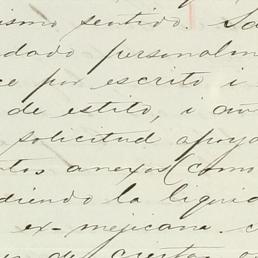 ismo sentido. Sa
dado personalm
ce por escrito i
de estilo, i av
solicitud apoya
tos anexos (como
diendo la liquid
ex-mejicana. c
de ciertos